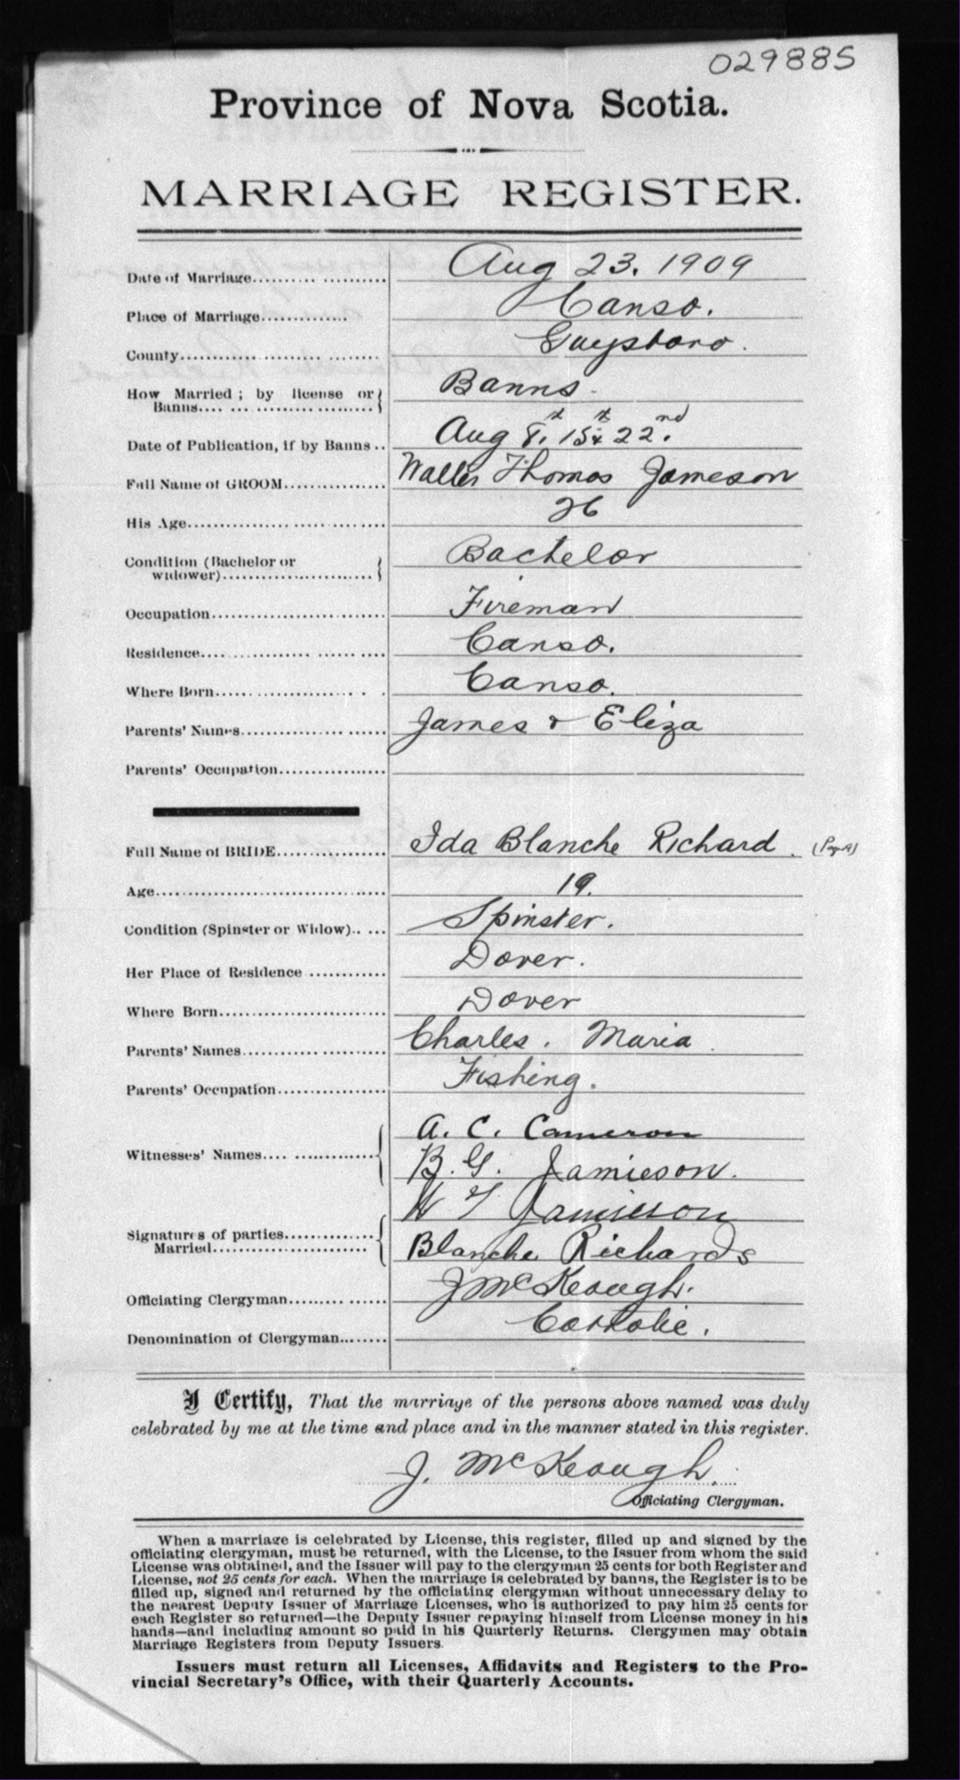 029885
Province of Nova Scotia.
MARRIAGE REGISTER.
Date of Marriage Aug 23. 1909
Place of Marriage Canso.
County Guysboro.
How Married; by license or Banns Banns.
Date of Publication, if by Banns Aug 8th. 15th & 22nd.
Full Name of GROOM Walter Thomas Jameson
His Age 26
Condition (Bachelor or widower) Bachelor
Occupation Fireman
Residence Canso.
Where Born Canso.
Parents' Names James & Eliza
Parents' Occupation
Full Name of BRIDE Ida Blanche Richard.
Age 19.
Condition (Spinster or Widow) Spinster.
Her Place of Residence Dover.
Where Born Dover
Parents' Names Charles. Maria
Parents' Occupation Fishing.
Witnesses' Names A. C. Cameron
B. G. Jamieson.
Signatures of parties Married W T Jamieson
Blanche Richards
Officiating Clergyman J McKeough.
Denomination of Clergyman Catholic.
I Certify, That the marriage of the persons above named was duly
celebrated by me at the time and place and in the manner stated in this register.
J. McKeough.
Officiating Clergyman.
When a marriage is celebrated by License, this register, filled up and signed by the
officiating clergyman, must be returned, with the License, to the Issuer from whom the said
License was obtained, and the Issuer will pay to the clergyman 25 cents for both Register and
License, not 25 cents for each. When the marriage is celebrated by banns, the Register is to be
filled up, signed and returned by the officiating clergyman without unnecessary delay to
the nearest Deputy Issuer of Marriage Licenses, who is authorized to pay him 25 cents for
each Register so returned—the Deputy Issuer repaying himself from License money in his
hands—and including amount so paid in his Quarterly Returns. Clergymen may obtain
Marriage Registers from Deputy Issuers.
Issuers must return all Licenses, Affidavits and Registers to the Pro-
vincial Secretary's Office, with their Quarterly Accounts.